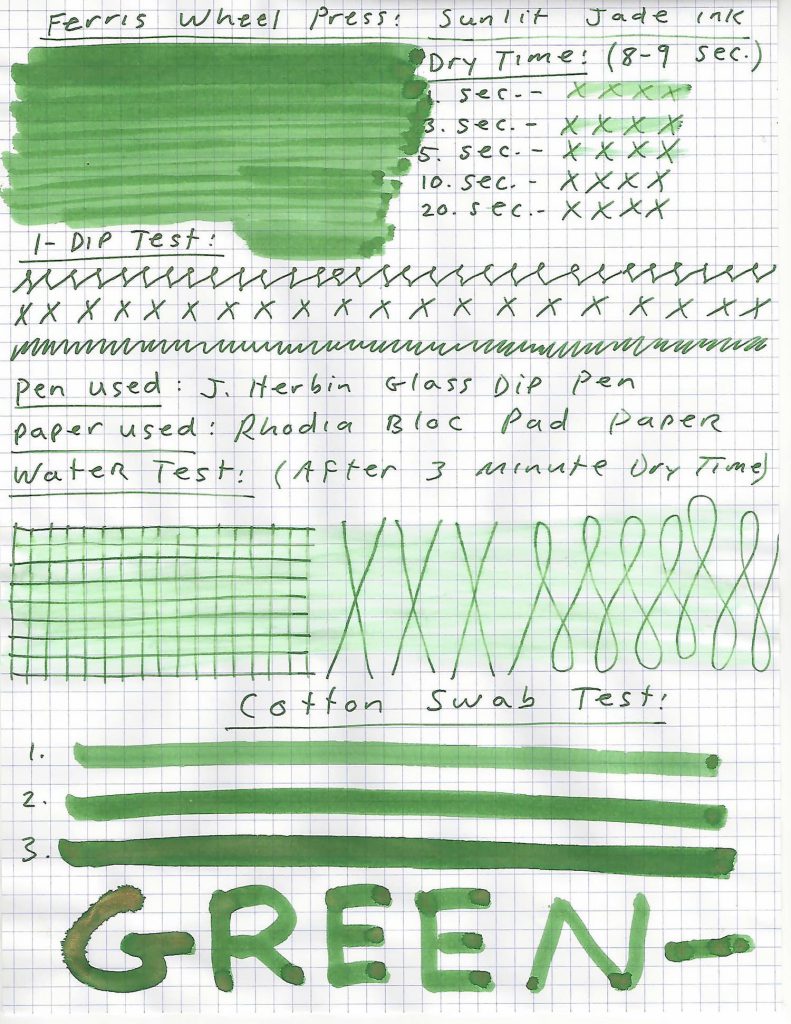 Ferris Wheel Press: Sunlit Jade ink
Dry Time: (8-9 sec.)
1. sec.- X X X X
3. sec.- X X X X
5. sec.- X X X X
10. sec.- X X X X
20. sec.- X X X X
1-Dip Test:
X X X X X X X X X X X X X X X X X X X X
Pen used: J. Herbin Glass Dip Pen
Paper used: Rhodia Bloc Pad Paper
Water Test: (After 3 minute Dry Time)
X X X
Cotton Swab Test:
1.
2.
3.
GREEN-